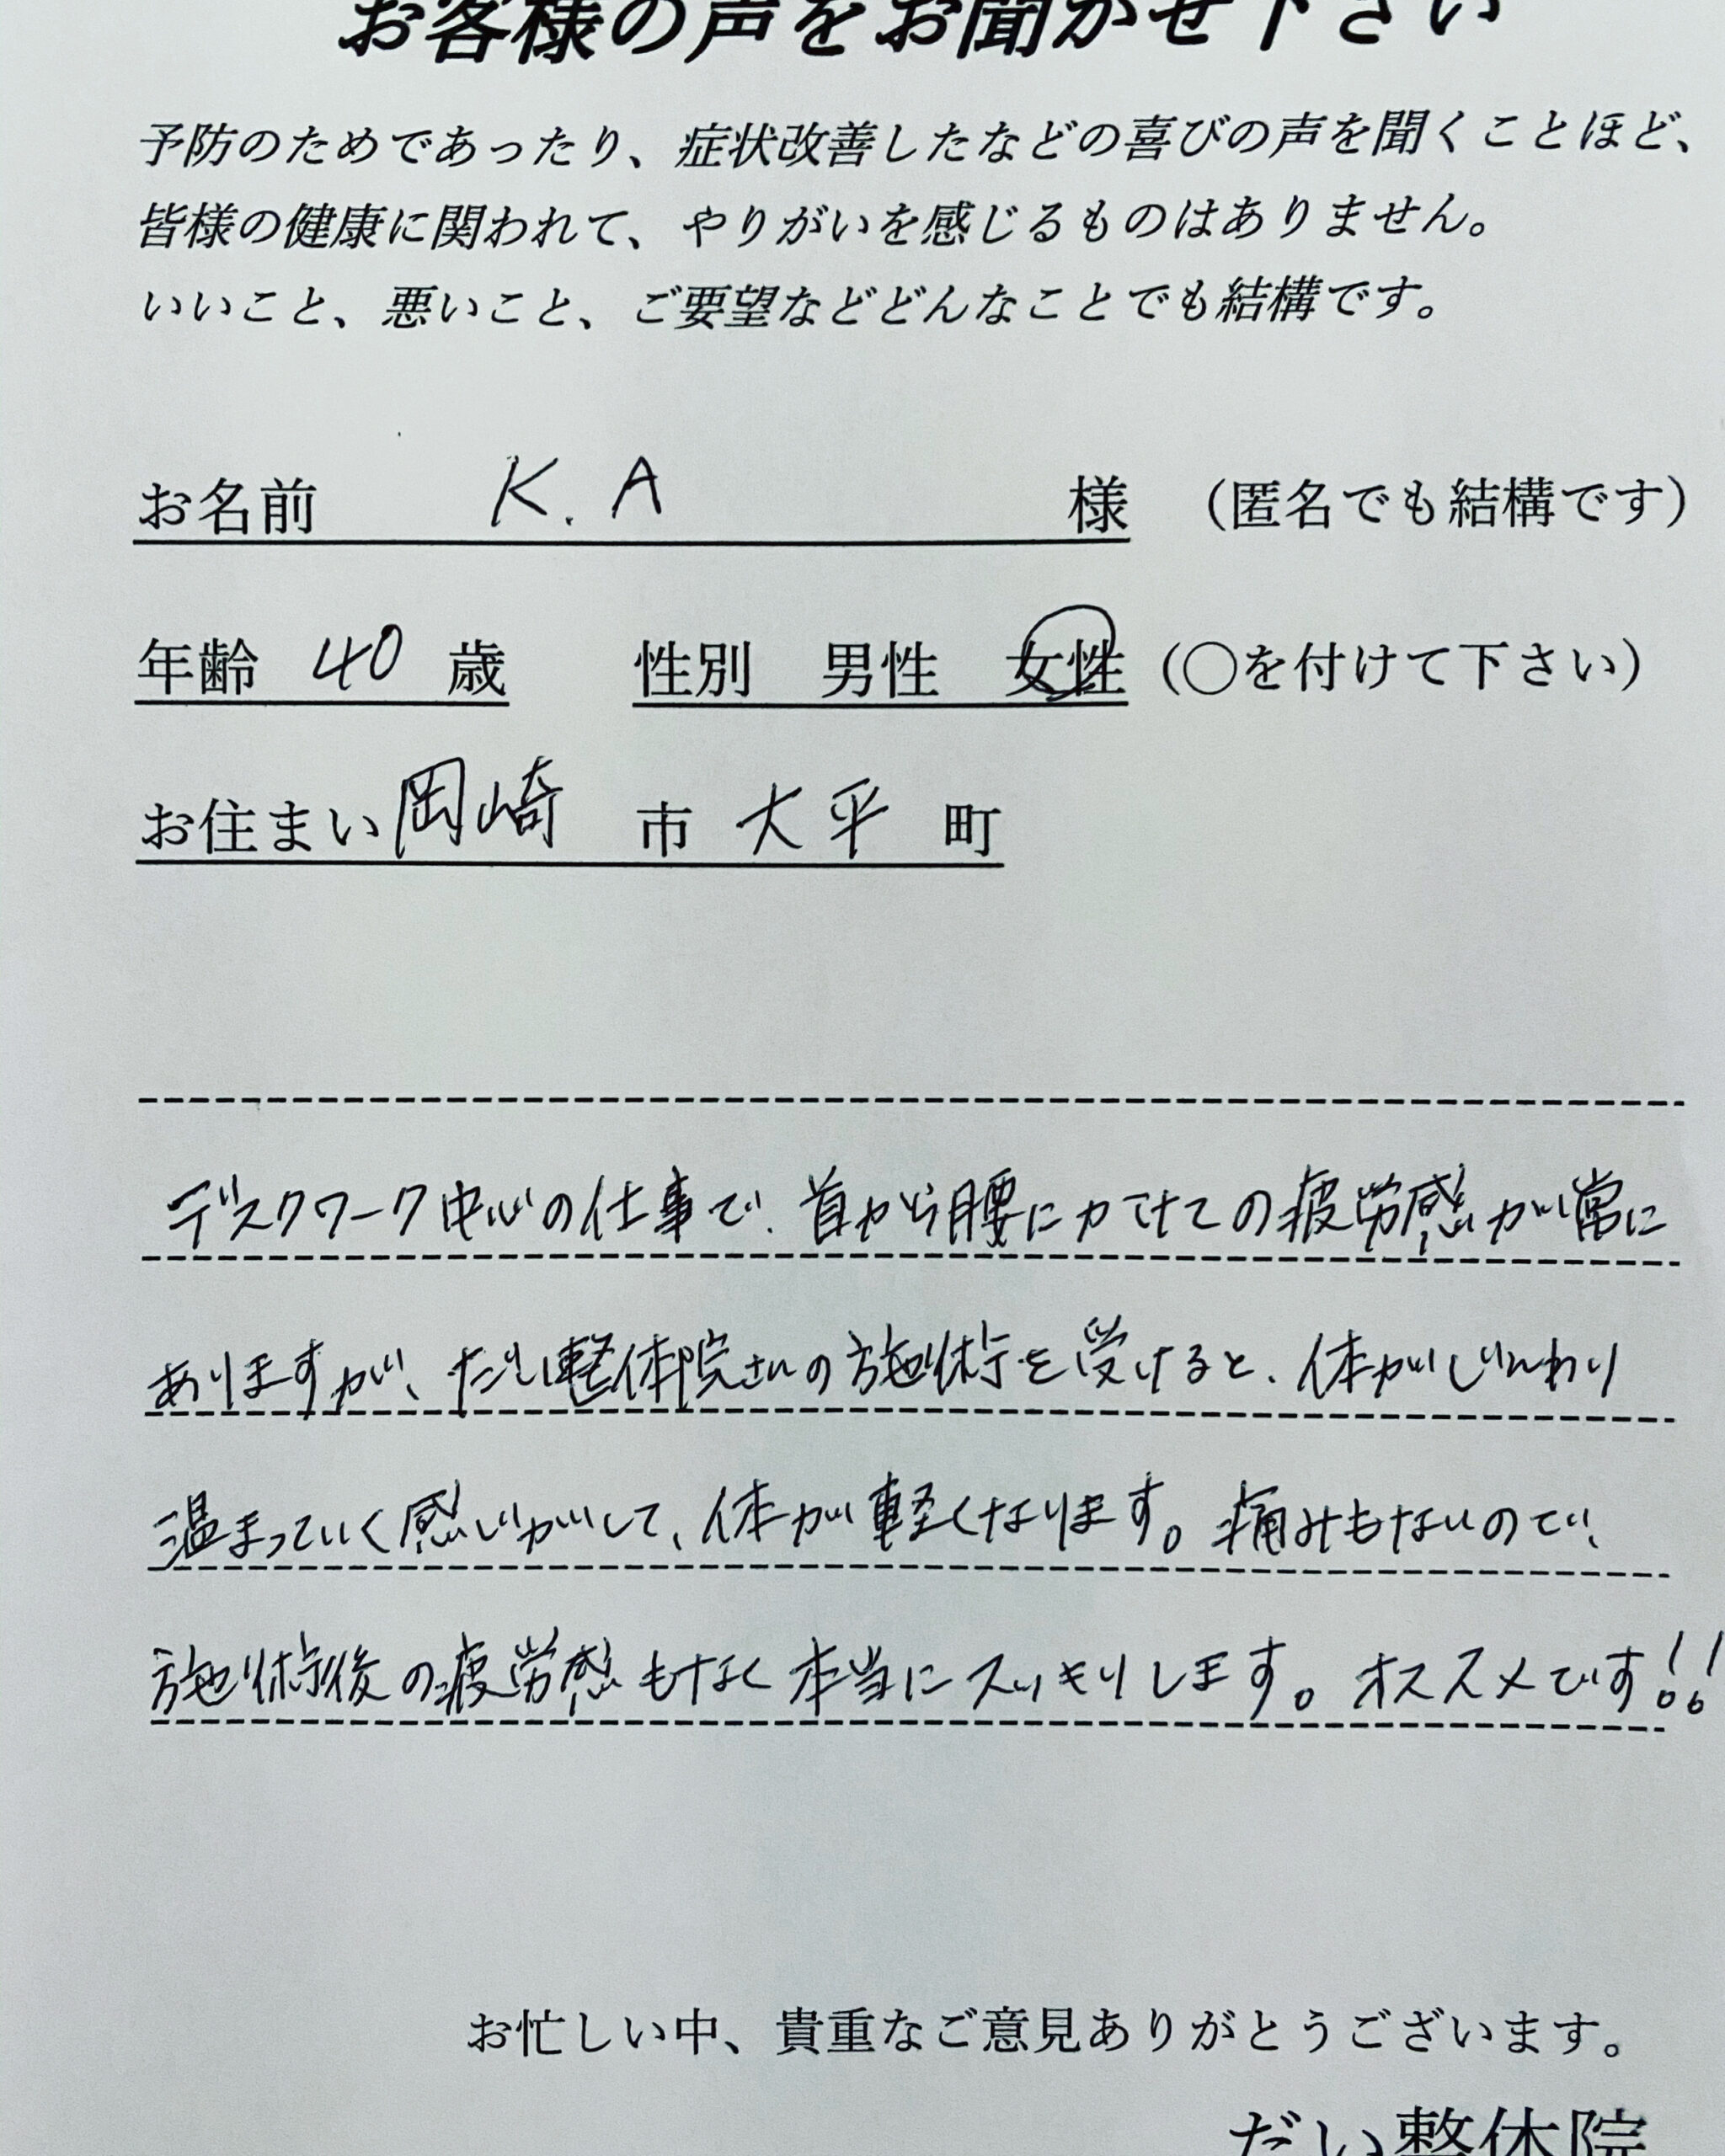 お客様の声をお聞かせ下さい
予防のためであったり、症状改善したなどの喜びの声を聞くことほど、
皆様の健康に関われて、やりがいを感じるものはありません。
いいこと、悪いこと、ご要望などどんなことでも結構です。
お名前 K.A 様 （匿名でも結構です）
年齢 40 歳 性別 男性 女性 （○を付けて下さい）
お住まい 岡崎 市 大平 町
デスクワーク中心の仕事で、首から腰にかけての疲労感が常に
ありますが、だい整体院さんの施術を受けると、体がじんわり
温まっていく感じがして、体が軽くなります。痛みもないので、
施術後の疲労感もなく本当にスッキリします。オススメです!!
お忙しい中、貴重なご意見ありがとうございます。
だい整体院